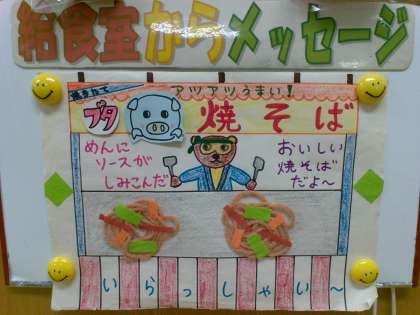 給食室からメッセージ
アツアツうまい!
焼きたて
ブタ
焼そば
めんに
ソースが
しみこんだ
おいしい
焼そば
だよ～
いらっしゃい～